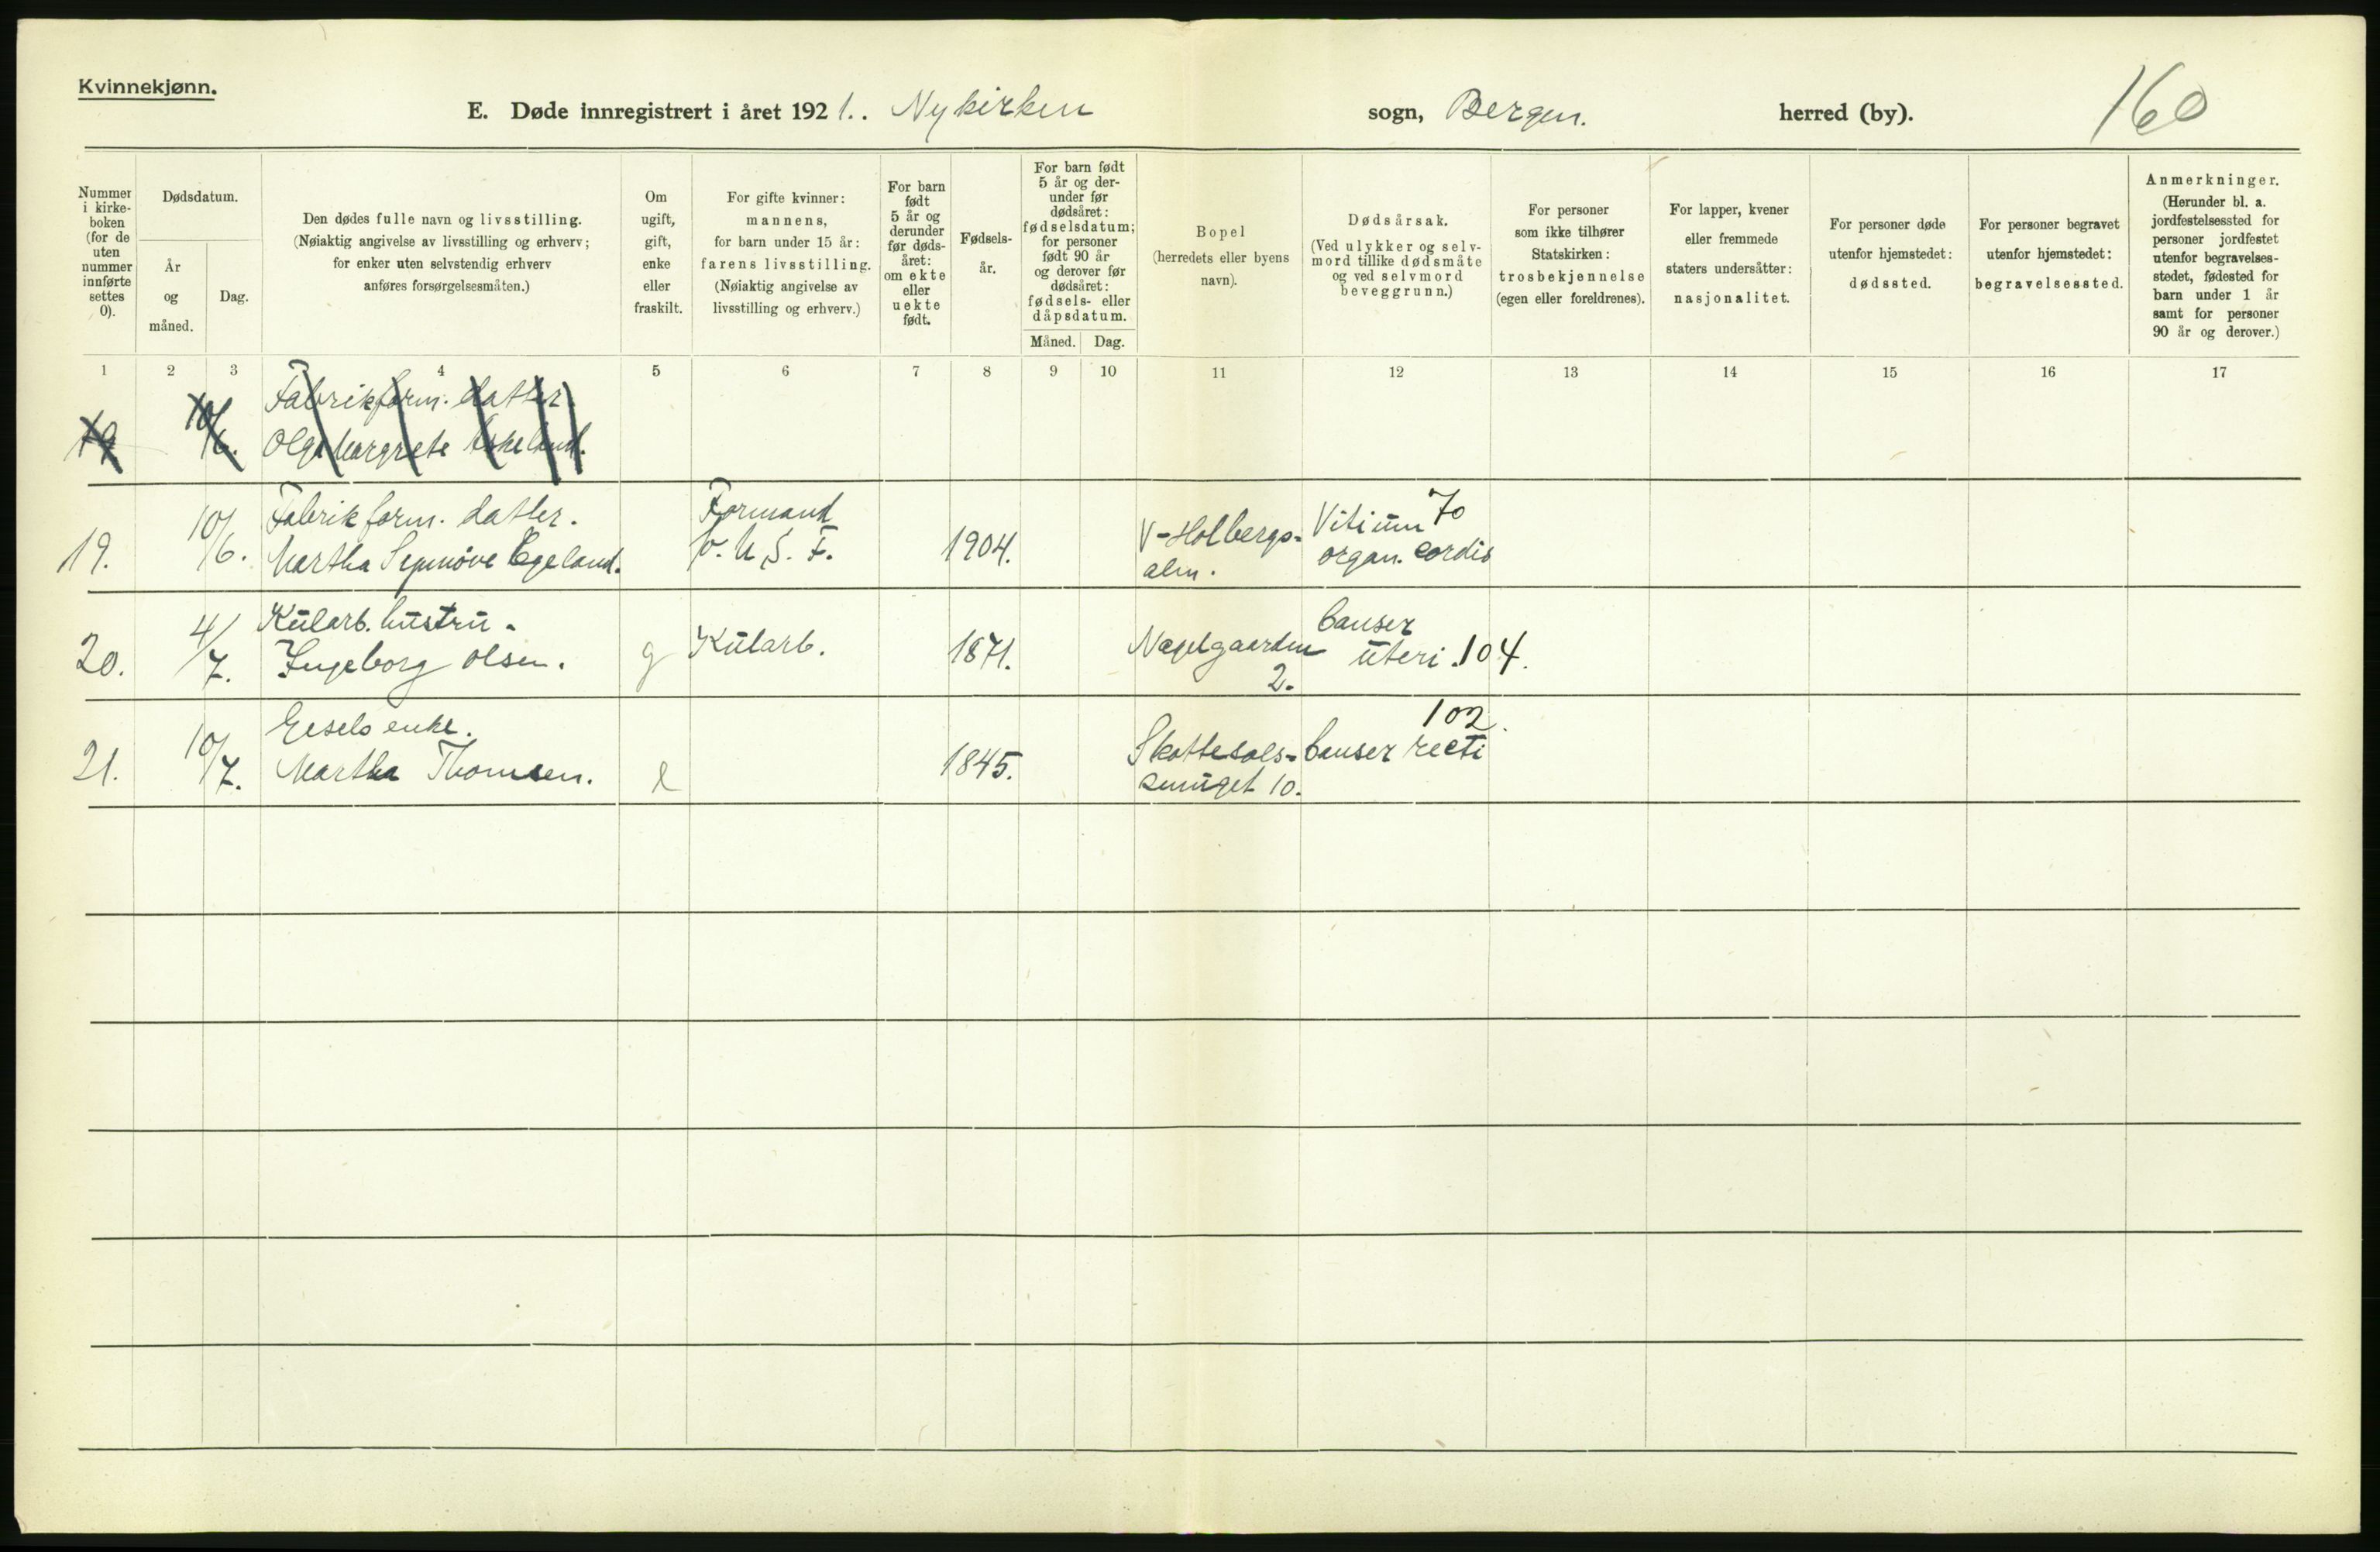 Kvinnekjønn.
E. Døde innregistrert i året 1921.. Nykirken sogn, Bergen. herred (by).
160
Nummer
i kirke-
boken
(for de
uten
nummer
innførte
settes
0).
Dødsdatum.
År
og
måned.
Dag.
Den dødes fulle navn og livsstilling.
(Nøiaktig angivelse av livsstilling og erhverv;
for enker uten selvstendig erhverv
anføres forsørgelsesmåten.)
Om
ugift,
gift,
enke
eller
fraskilt.
For gifte kvinner:
mannens,
for barn under 15 år:
farens livsstilling.
(Nøiaktig angivelse av
livsstilling og erhverv.)
For barn
født
5 år og
derunder
før døds-
året:
om ekte
eller
uekte
født.
Fødsels-
år.
For barn født
5 år og der-
under før
dødsåret:
fødselsdatum;
for personer
født 90 år
og derover før
dødsåret:
fødsels- eller
dåpsdatum.
Måned. Dag.
Bopel
(herredets eller byens
navn).
Dødsårsak.
(Ved ulykker og selv-
mord tillike dødsmåte
og ved selvmord
beveggrunn.)
For personer
som ikke tilhører
Statskirken:
trosbekjennelse
(egen eller foreldrenes).
For lapper, kvener
eller fremmede
staters undersåtter:
nasjonalitet.
For personer døde
utenfor hjemstedet:
dødssted.
For personer begravet
utenfor hjemstedet:
begravelsessted.
Anmerkninger.
(Herunder bl. a.
jordfestelsessted for
personer jordfestet
utenfor begravelses-
stedet, fødested for
barn under 1 år
samt for personer
90 år og derover.)
1 2 3 4 5 6 7 8 9 10 11 12 13 14 15 16 17
Fabrikform. datter.
19 10/6. Olga Margrete
Fabrikform. datter. Formand Vitium 70
19. 10/6. Martha Synnöve Egeland. v. U. S. F. 1904. V-Holbergs- organ. cordis
alm.
Kularb. hustru. Canser
20. 4/7. Ingeborg Olsen. g Kularb. 1871. Nagelgaarden uteri. 104.
2.
enke. 102
21. 10/7. Martha Thomsen. e 1845. Skottesals- Canser recti
smuget 10.